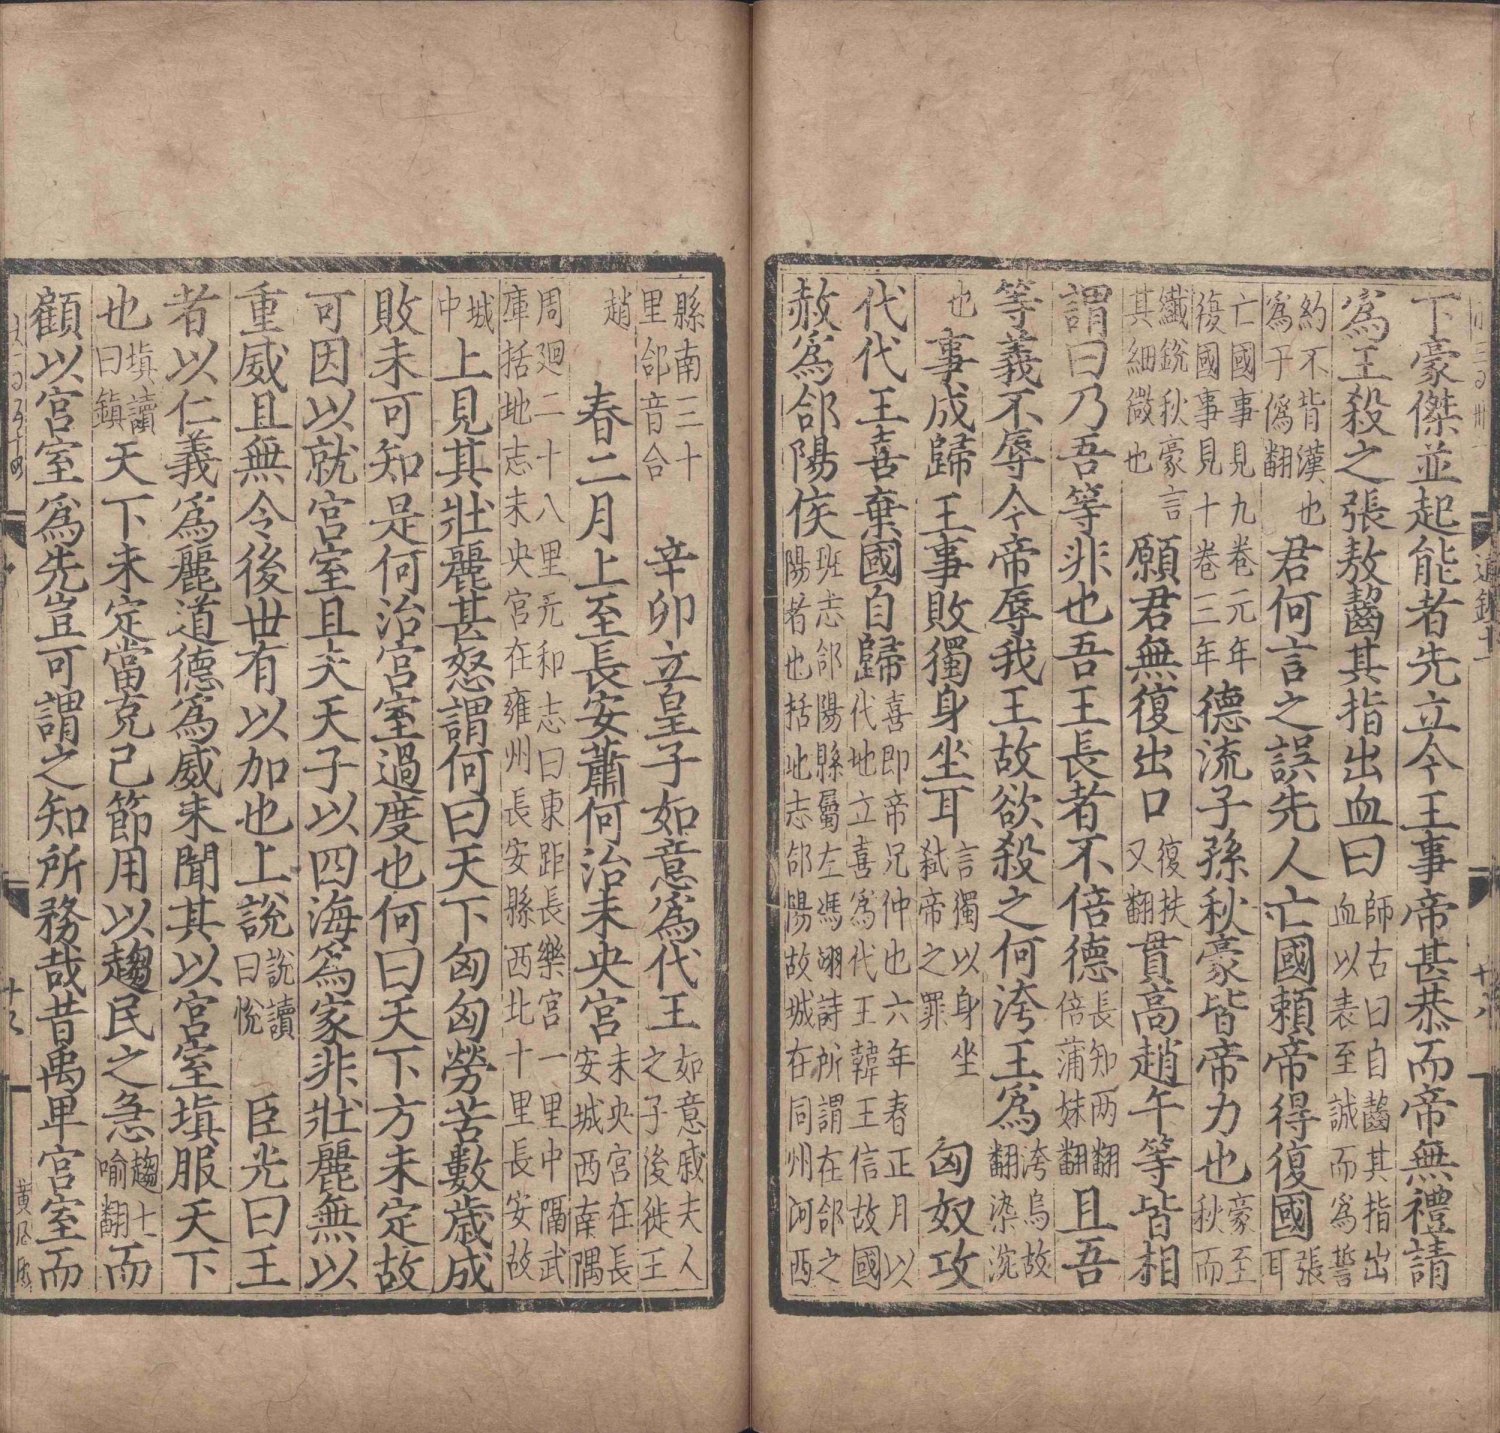 下豪傑並起能者先立今王事帝甚恭而帝無禮請
爲王殺之張敖齧其指出血曰師古曰自齧其指出血以表至誠而爲誓
約不背漢也爲于僞翻君何言之誤先人亡國賴帝得復國張耳
亡國事見九卷元年復國事見十卷三年德流子孫秋豪皆帝力也豪至秋而
纖銳秋豪言其細微也願君無復出口復扶又翻貫高趙午等皆相
謂曰乃吾等非也吾王長者不倍德長知两翻倍蒲妹翻且吾
等義不辱今帝辱我王故欲殺之何洿王爲洿烏故翻染浼
也事成歸王事敗獨身坐耳言獨以身坐弑帝之罪匈奴攻
代代王喜棄國自歸喜即帝兄仲也六年春正月以代地立喜爲代王韓王信故國
赦爲郃陽侯班志郃陽縣屬左馮翊詩所謂在郃之陽者也括地志郃陽故城在同州河西
縣南三十里郃音合辛卯立皇子如意爲代王如意戚夫人之子後徙王
趙春二月上至長安蕭何治未央宮未央宮在長安城西南隅
周廻二十八里元和志曰東距長樂宮一里中隔武庫括地志未央宮在雍州長安縣西北十里長安故
城中上見其壯麗甚怒謂何曰天下匈匈勞苦數歲成
敗未可知是何治宮室過度也何曰天下方未定故
可因以就宮室且夫天子以四海爲家非壯麗無以
重威且無令後世有以加也上說說讀曰悅臣光曰王
者以仁義爲麗道德爲威未聞其以宮室塡服天下
也塡讀曰鎮天下未定當克己節用以趨民之急趨七喻翻而
顧以宮室爲先豈可謂之知所務哉昔禹卑宮室而